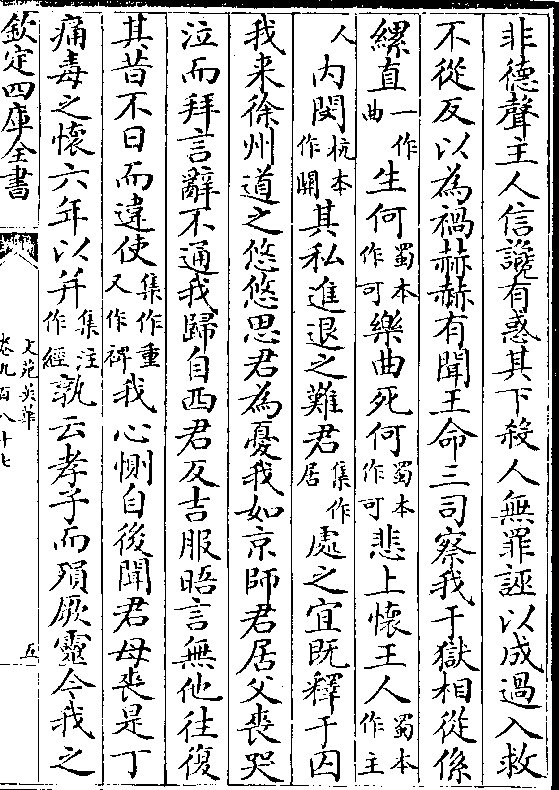 非德聲主人信讒有惑其下殺人無罪誣以成過入救
不從反以為禍赫赫有聞王命三司察我于獄相從係
縲直一作曲生何蜀本作可樂曲死何蜀本作可悲上懷王人蜀本作主
人内閔杭本作開其私進退之難君集作居處之宜既釋于囚
我來徐州道之悠悠思君為憂我如京師君居父喪哭
泣而拜言辭不通我歸自西君反吉服晤言無他往復
其昔不日而違使集作重又作裨我心惻自後聞君母喪是丁
痛毒之懷六年以并集注作經孰云孝子而殞厥靈今我之
欽定四庫全書
文苑英華
卷九百八十七
五